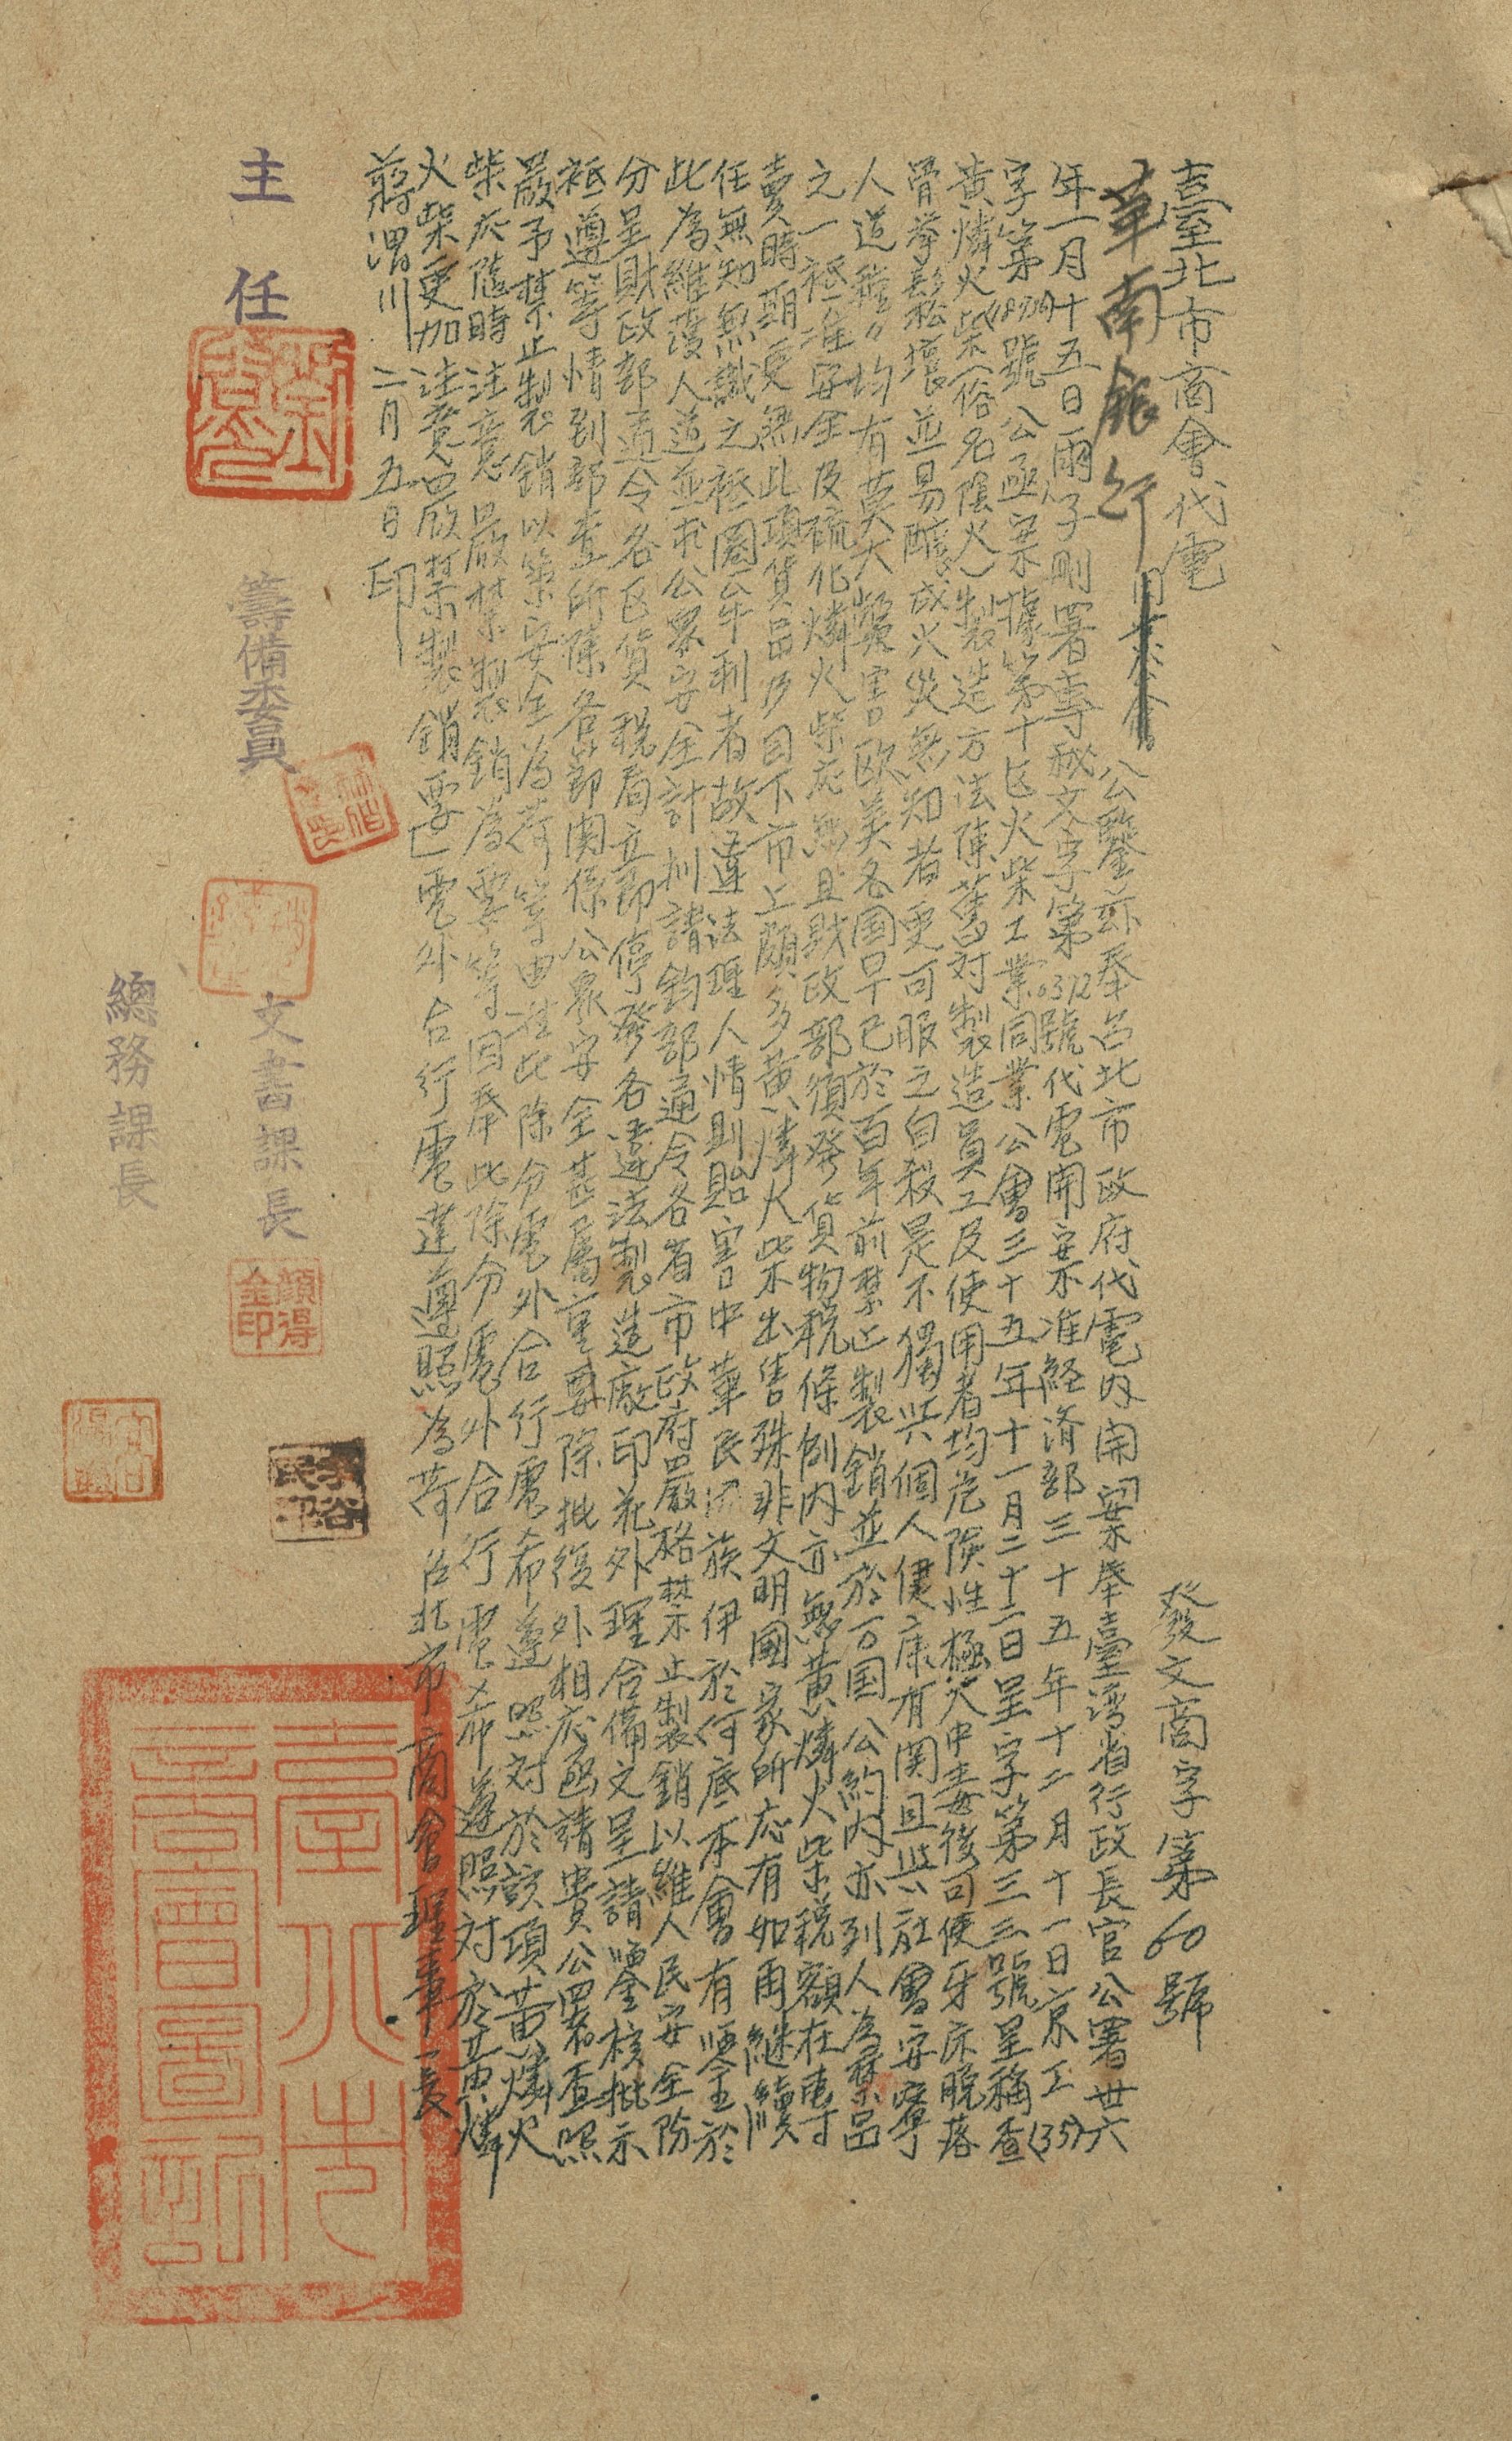 臺北市商會代電
發文商字第60號
華南銀行
公鑒亦奉台北市政府代電內開案奉臺湾省行政長官公署卅六
年一月十五日酉子刪署專秘文字第0312號代電開案准経済部三十五年十二月十一日京工(35)
字第18936號公函案據第十区火柴工業同業公會三十五年十一月二十二日呈字第三三號呈稱查
黃燐火柴(俗名陰火)製造方法陳舊对製造員工及使用者均危険性極大中毒後可使牙床脫落
骨拳鬆壞並易釀成火災無知者更可服之自殺是不獨與個人健康有関且與社會安寧
人道種々均有莫大弊害歐美各国早已於百年前禁止製銷並於万国公約內亦列人為禁品
之一祗准安全及硫化燐火柴応無且財政部頒発貨物税條例內亦無黃燐火柴税額在專
賣時期更無此項貨品乃目下市上頗多黃燐火柴出售殊非文明國家所応有如再継續
任無知無識之祗圖牟利者故違法理人情則貽害中華民国族伊於何底本會有鑒於
此為維護人道並求公眾安全計擬請鈞部通令各省市政府嚴格禁止製銷以維人民安全防
分呈財政部通令各区貨税局立即停発各違法製造廠印花外理合備文呈請鑒核批示
祗遵等情到部查所陳各節関係公眾安全甚屬重要除批復外相応函請貴公署查照
嚴予禁止製銷以策安全為荷等由准此除分電外合行電希遵照对於該項黃燐火
柴応隨時注意嚴禁製銷為要等因奉此除分電外合行電希遵照对於黃燐
火柴更加注意嚴禁製銷要亡電外合行電達遵照為荷台北市商會理事長
蔣渭川二月五日印
主任
籌備委員
文書課長
顏得金印
總務課長